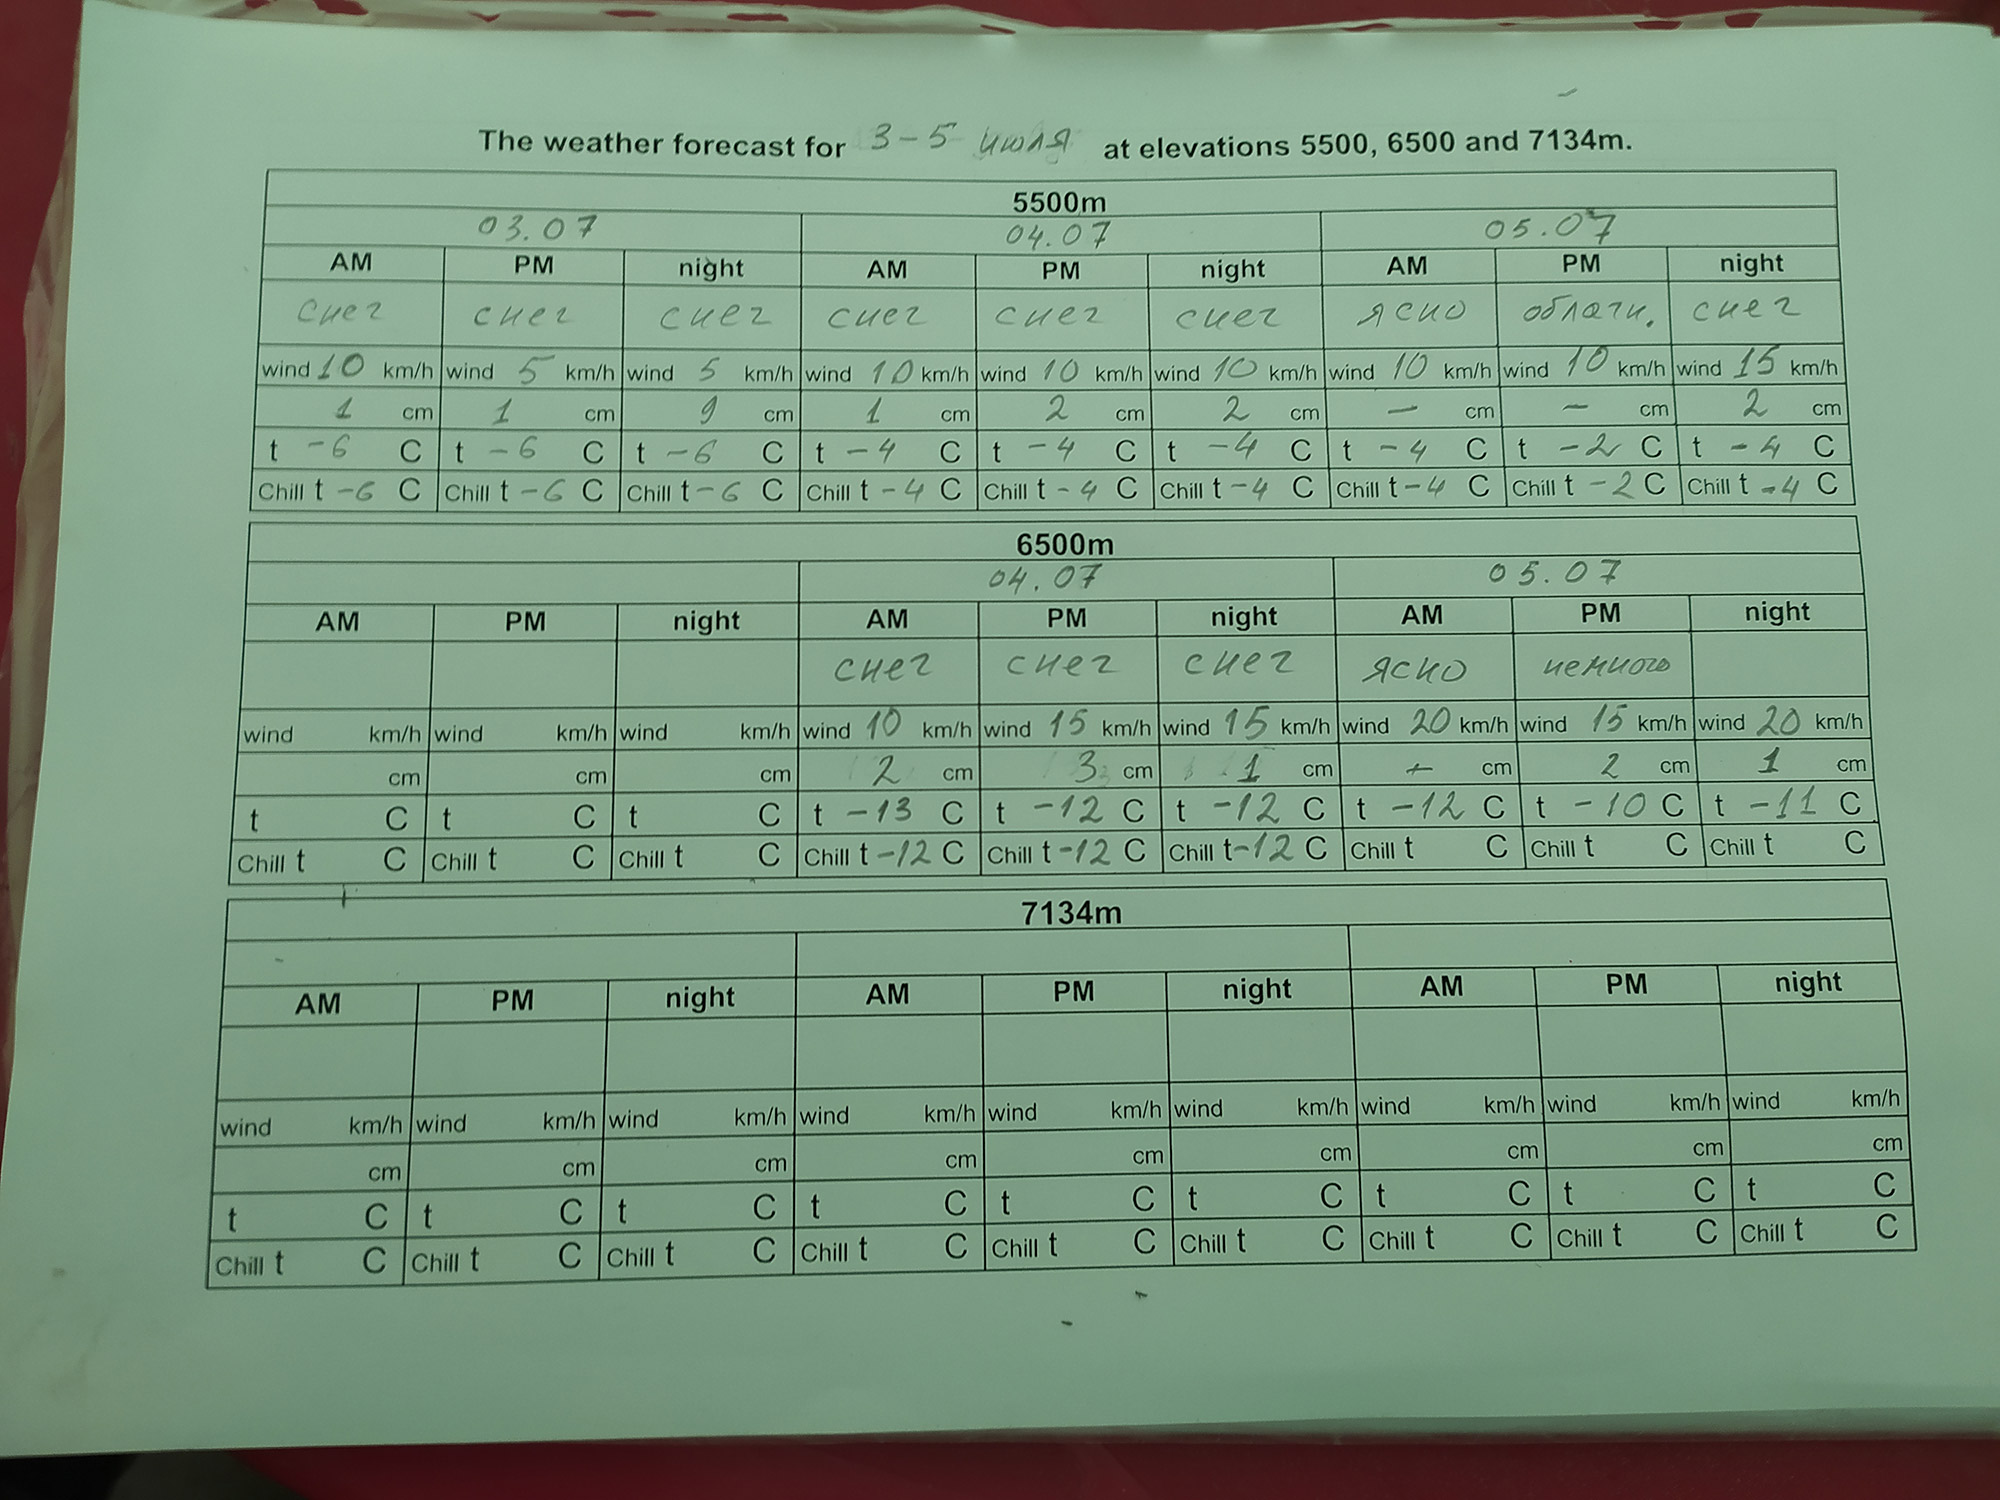 The weather forecast for 3-5 июля at elevations 5500, 6500 and 7134m.
5500m
03.07 04.07 05.07
AM PM night AM PM night AM PM night
снег снег снег снег снег снег ясно облачн. снег
wind 10 km/h wind 5 km/h wind 5 km/h wind 10 km/h wind 10 km/h wind 10 km/h wind 10 km/h wind 10 km/h wind 15 km/h
1 cm 1 cm 9 cm 1 cm 2 cm 2 cm — cm — cm 2 cm
t -6 C t -6 C t -6 C t -4 C t -4 C t -4 C t -4 C t -2 C t -4 C
Chill t -6 C Chill t -6 C Chill t -6 C Chill t -4 C Chill t -4 C Chill t -4 C Chill t -4 C Chill t -2 C Chill t -4 C
6500m
04.07 05.07
AM PM night AM PM night AM PM night
снег снег снег ясно немного
wind km/h wind km/h wind km/h wind 10 km/h wind 15 km/h wind 15 km/h wind 20 km/h wind 15 km/h wind 20 km/h
cm cm cm 2 cm 3 cm 1 cm — cm 2 cm 1 cm
t C t C t C t -13 C t -12 C t -12 C t -12 C t -10 C t -11 C
Chill t C Chill t C Chill t C Chill t -12 C Chill t -12 C Chill t -12 C Chill t C Chill t C Chill t C
7134m
AM PM night AM PM night AM PM night
wind km/h wind km/h wind km/h wind km/h wind km/h wind km/h wind km/h wind km/h wind km/h
cm cm cm cm cm cm cm cm cm
t C t C t C t C t C t C t C t C t C
Chill t C Chill t C Chill t C Chill t C Chill t C Chill t C Chill t C Chill t C Chill t C